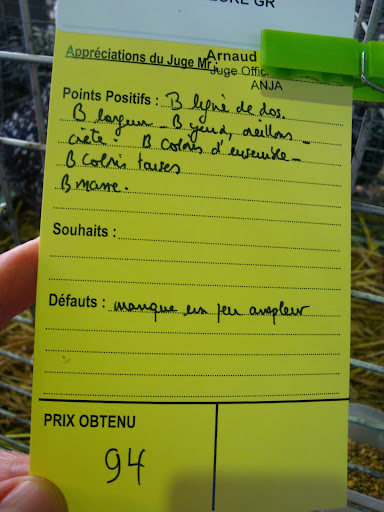 Appréciations du Juge Mr : Arnaud
Juge Offici
ANJA
Points Positifs : B ligne de dos.
B largeur - B yeux, oreillons -
crête. B coloris d'ensemble -
B coloris tarses
B masse.
Souhaits :
Défauts : manque un peu ampleur
PRIX OBTENU
94